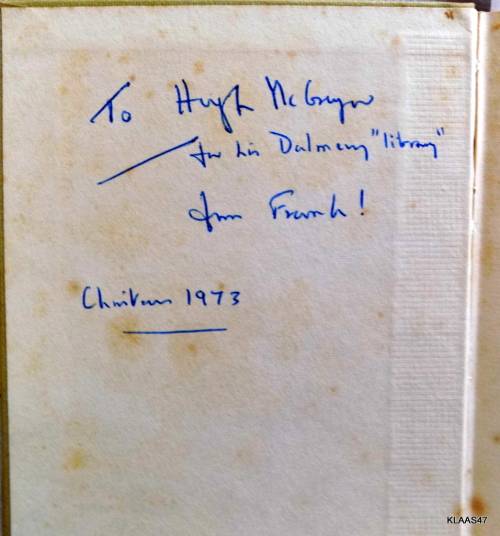 To Hugh McGregor
for his Dalmeny "library"
from Frank!
Christmas 1973
KLAAS47